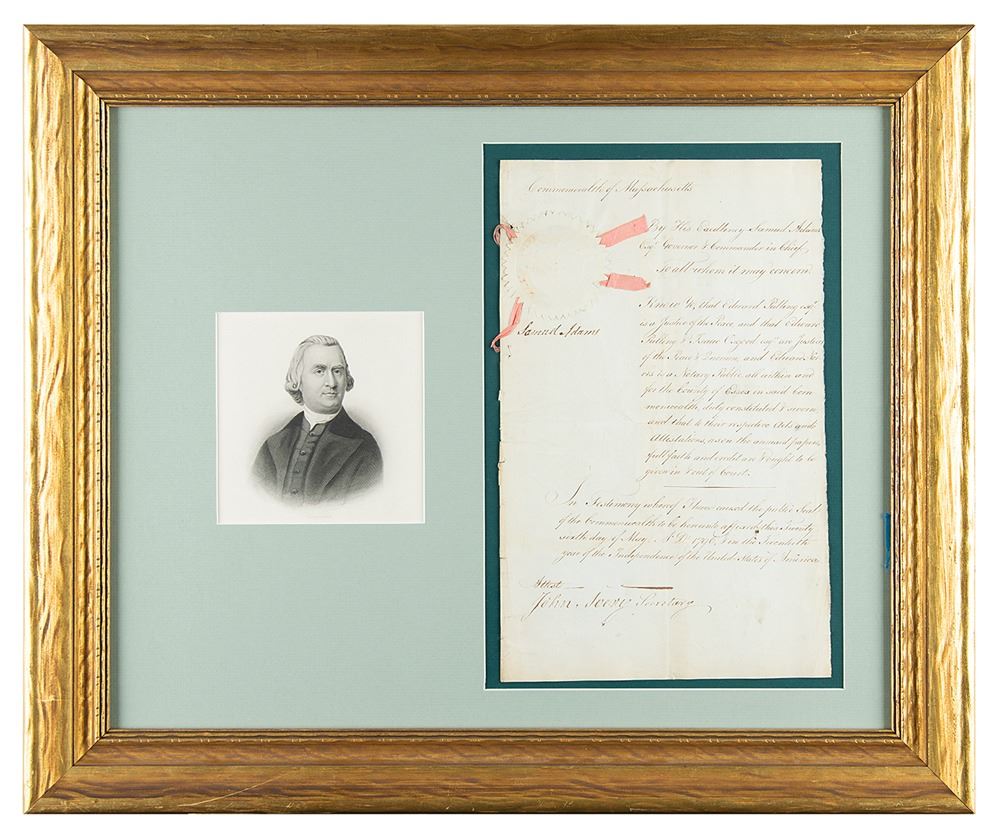 Commonwealth of Massachusetts
By His Excellency Samuel Adams
Esqr. Governor & Commander in Chief,
To all whom it may concern
Know Ye, that Edward Pulling esqr.
is a Justice of the Peace, and that Edward
Pulling & Isaac Osgood esqrs. are Justices
of the Peace & Quorum, and Edward Nor
ris is a Notary Public, all within and
for the County of Essex in said Com
monwealth duly constituted & sworn
and that to their respective Acts and
Attestations, as on the annexed papers,
full faith and credit are & ought to be
given in & out of Court.
Samuel Adams
In Testimony whereof I have caused the public Seal
of the Commonwealth to be hereunto affixed this Twenty
sixth day of May A.D. 1796, & in the Twentieth
year of the Independence of the United States of America
Attest
John Avery Secretary